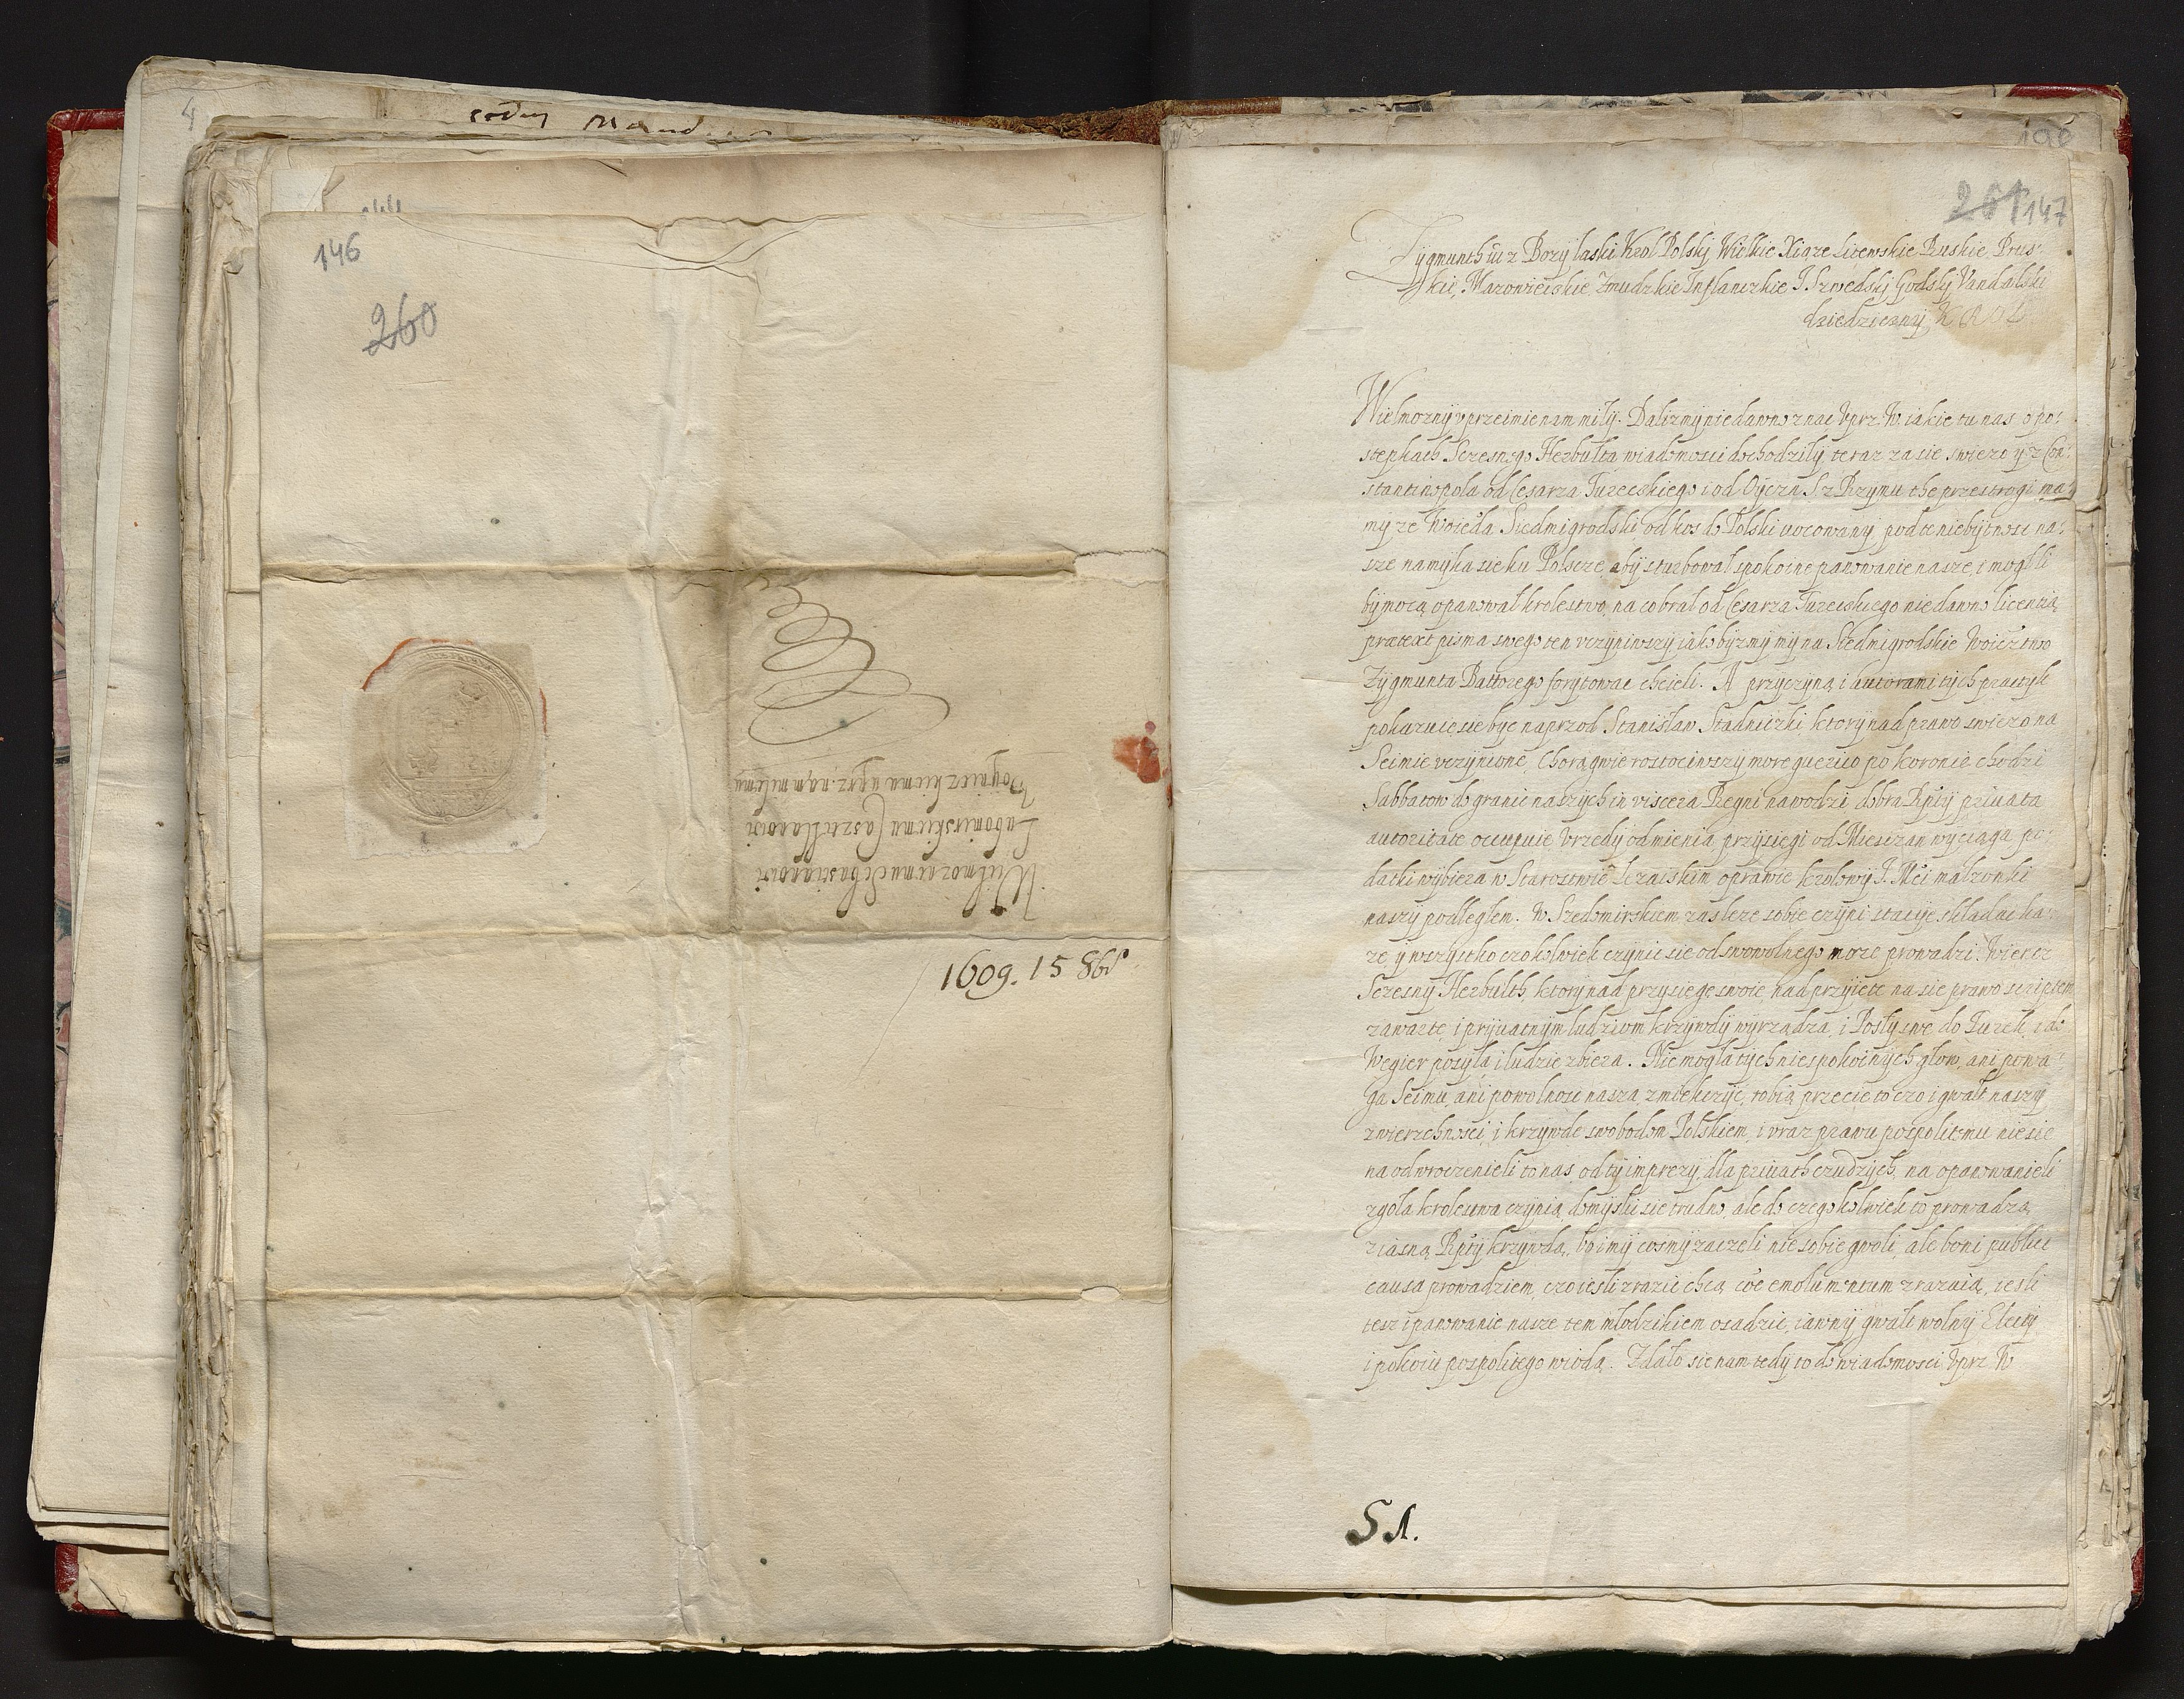 146
260
Wielmoznemu Sebastianowi
Lubomirskiemu Casztellanowi
Woynickiemu uprz. nam milemu
1609. 15 8bʳ
147
Zygmunth iii z Bozy laski Krol Polsky Wielkie Xiąze Litewskie Ruskie Prus:
kie, Mazowieckie Zmudzkie Inflanczkie I Szwedsky Godsky Vandalski
dziedziczny KROL
Wielmozny vprzeimie nam miły. Dalizmy niedawno znac Vprz. W. iakie tu nas o po:
stepkach Sczesnego Herbulta wiadomosci dochodziły, teraz zasie swiezo y z Con:
stantinopola od Cesarza Tureckiego i od Oycza S. z Rzymu the przestrogi ma:
my ze Woieda Siedmigrodski od kos do Polski uocowany pod te niebytnosc na:
sze namyka sie ku Polscze aby sturbował spokoine panowanie nasze i mogł li
by mocą opanował krolestwo, na co brał od Cesarza Tureckiego niedawno licentią
prætext pisma swego ten vczyniwszy iakobyzmy my na Siedmigrodskie Woiecztwo
Zygmunta Battorego forytowac chcieli. A przyczyną i autorami tych practyk
pokazuie sie byc naprzod Stanisław Stadniczki, ktory nad prawo swiezo na
Seimie vczynione, Chorągwie roztocziwszy more guerico po koronie chodzi
Sabbatow do granic naszych in viscera Regni nawodzi dobra Rpty priuata
autoritate occupuie Vrzedy odmienia, przysiegi od Mieszczan wyciąga po:
datki wybiera w Starostwie Lezaiskim oprawie krolowy J. Mci małzonki
naszy podległem. W Szedomirskiem zasleze sobie czyni stacye składac ka:
ze y wszystko czokolwiek czynic sie od swowolnego moze prowadzi. Wiercz
Sczesny Herbulth, ktory nad przysiege swoie, nad przyiete na sie prawo scriptem
zawarte, i priuatnym ludziom krzywdy wyrządza, i Posły swe do Turek i do
Wegier posyła i ludzie zbiera. Nie mogła tych niespokoinych głow, ani powa:
ga Seimu, ani powolnosc nasza zmiekczyc, robią przecie to czo i gwałt naszy
zwierzchnosci, i krzywde swobodom Polskiem, i vraz prawu pospolitemu niesie
na odwroczenieli to nas od ty imprezy, dla priuath czudzych, na opanowanieli
zgoła krolestwa czynią, domyslic sie trudno, ale do czegokolwiek to prowadzą
z iasną Rpty krzywdą, bo i my cosmy zaczeli nie sobie gwoli, ale boni publici
causa prowadziem, czo iesli zrazic chcą, we emolumentum zrazaią, iesli
tesz i panowanie nasze tem młodzikiem osadzic, iawny gwałt wolny Electy
i pokoiu pospolitego wiodą. Zdało sie nam tedy to do wiadomosci Vprz. W
S A.